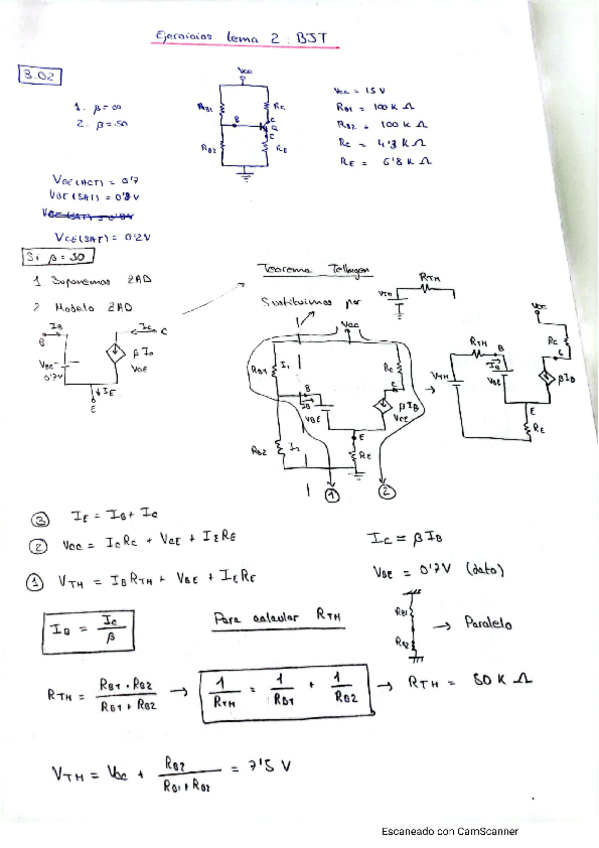 Ejercicios tema 2: BJT
3.02
1. β=∞
2. β=50
VCC
RB1
RC
B
C
Q
E
RB2
RE
VCC = 15 V
RB1 = 100 K Ω
RB2 = 100 K Ω
RC = 4'3 K Ω
RE = 6'8 K Ω
VBE(ACT) = 0'7
VBE(SAT) = 0'8
VCE(SAT) = 0'2V
Si β = 50
1 Suponemos ZAD
2 Modelo ZAD
IB
B
VBE
0'7V
IC
C
β IB
VCE
IE
E
Teorema
Sustituimos por
VTH
RTH
VCC
RB1
I1
RC
B
C
IB
VBE
βIB
VCE
RB2
I2
E
RE
1
2
VCC
RC
RTH
B
IB
C
VTH
VBE
βIB
E
RE
3 IE = IB + IC
2 VCC = ICRC + VCE + IERE
IC = β IB
1 VTH = IBRTH + VBE + IERE
VBE = 0'7V (dato)
IB = IC / β
Para calcular RTH
RB1
RB2
→ Paralelo
RTH = RB1 · RB2 / RB1 + RB2 → 1 / RTH = 1 / RB1 + 1 / RB2 → RTH = 50 K Ω
VTH = VCC + RB2 / RB1 + RB2 = 7'5 V
Escaneado con CamScanner